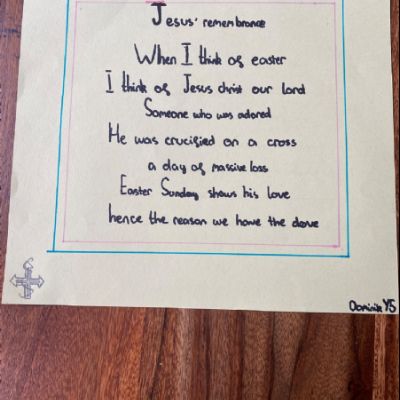 Jesus' remembrance
When I think of easter
I think of Jesus christ our lord
Someone who was adored
He was crucified on a cross
a day of massive loss
Easter Sunday shows his love
hence the reason we have the dove
Dominik Y5